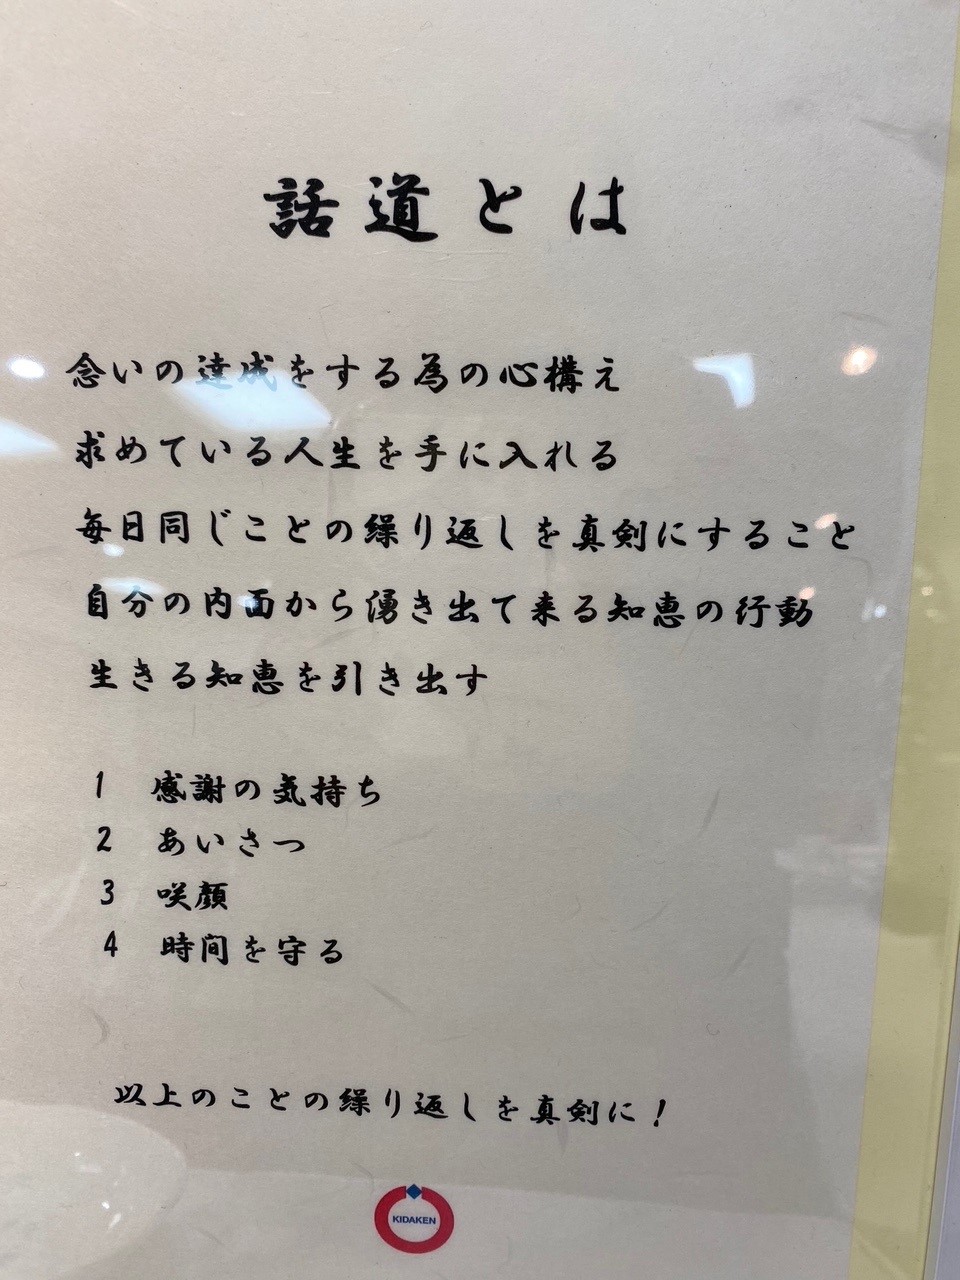 話道とは
念いの達成をする為の心構え
求めている人生を手に入れる
毎日同じことの繰り返しを真剣にすること
自分の内面から湧き出て来る知恵の行動
生きる知恵を引き出す
1 感謝の気持ち
2 あいさつ
3 咲顔
4 時間を守る
以上のことの繰り返しを真剣に！
KIDAKEN